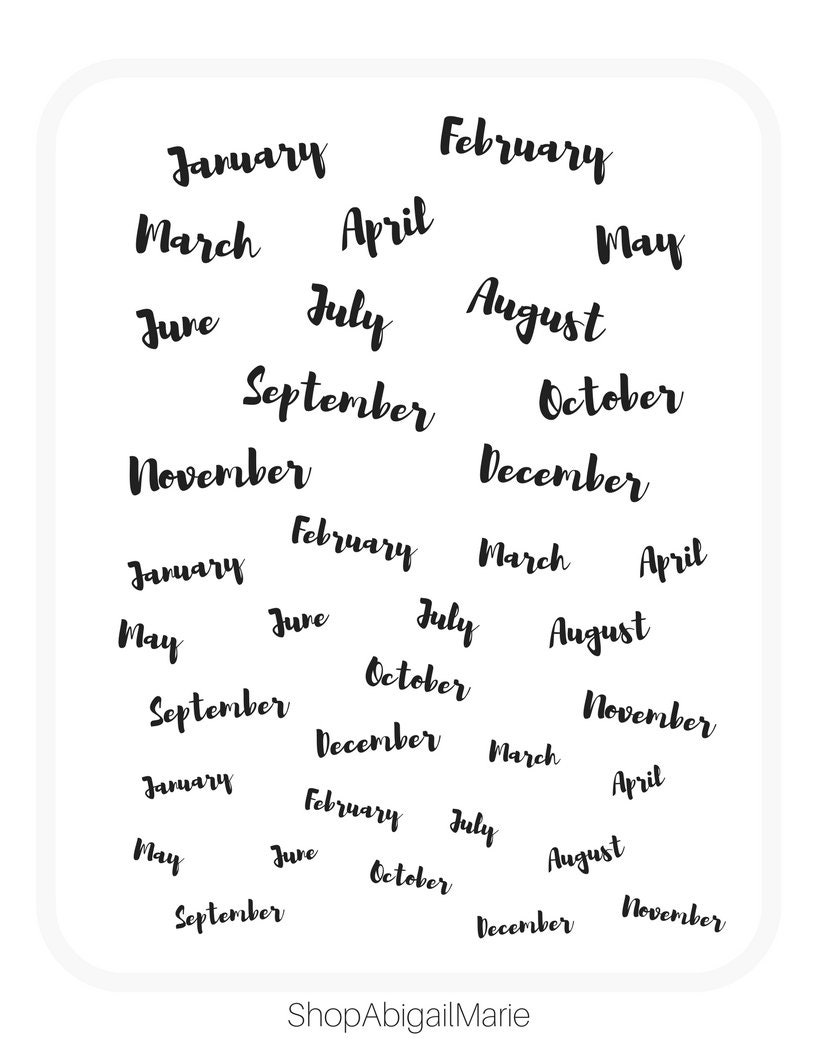 January February
March April May
June July August
September October
November December
January February March April
May June July August
September October November
December March
January February July April
May June October August
September December November
ShopAbigailMarie